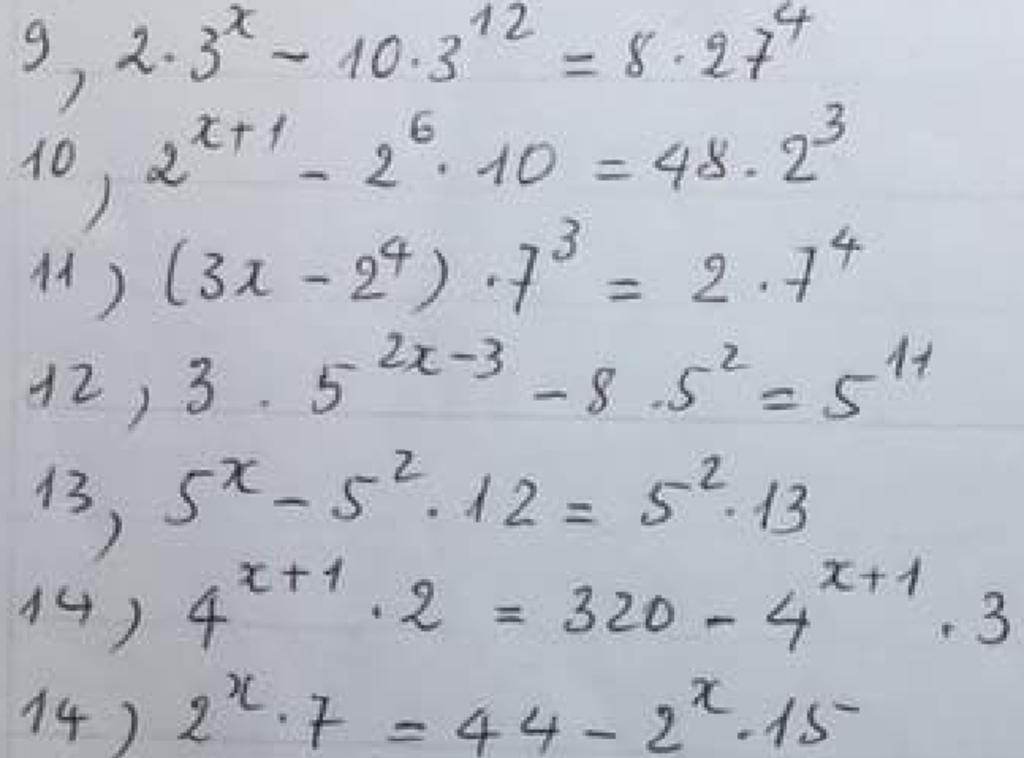 9, 2·3^x - 10·3^12 = 8·27^4
10, 2^(x+1) - 2^6·10 = 48·2^3
11) (3x - 2^4)·7^3 = 2·7^4
12, 3·5^(2x-3) - 8·5^2 = 5^11
13, 5^x - 5^2·12 = 5^2·13
14) 4^(x+1)·2 = 320 - 4^(x+1)·3
14) 2^x·7 = 44 - 2^x·15